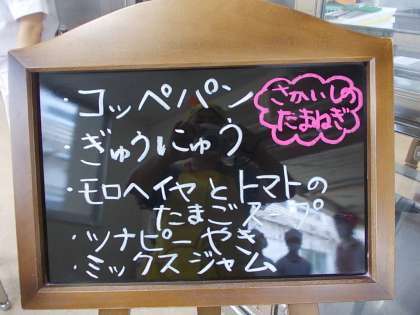 ・コッペパン
さかいしの
たまねぎ
・ぎゅうにゅう
・モロヘイヤとトマトの
たまごスープ
・ツナピーやき
・ミックスジャム